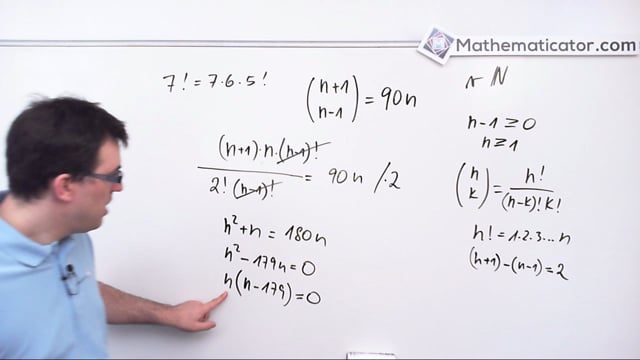 Mathematicator.com
7! = 7·6·5!
(n+1 n-1) = 90n
(n+1)·n·(n-1)! / 2!(n-1)! = 90n /·2
n²+n = 180n
n²-179n=0
n(n-179)=0
N
n-1 ≥ 0
n ≥ 1
(n k) = n! / (n-k)! k!
n! = 1·2·3... n
(n+1)-(n-1)=2